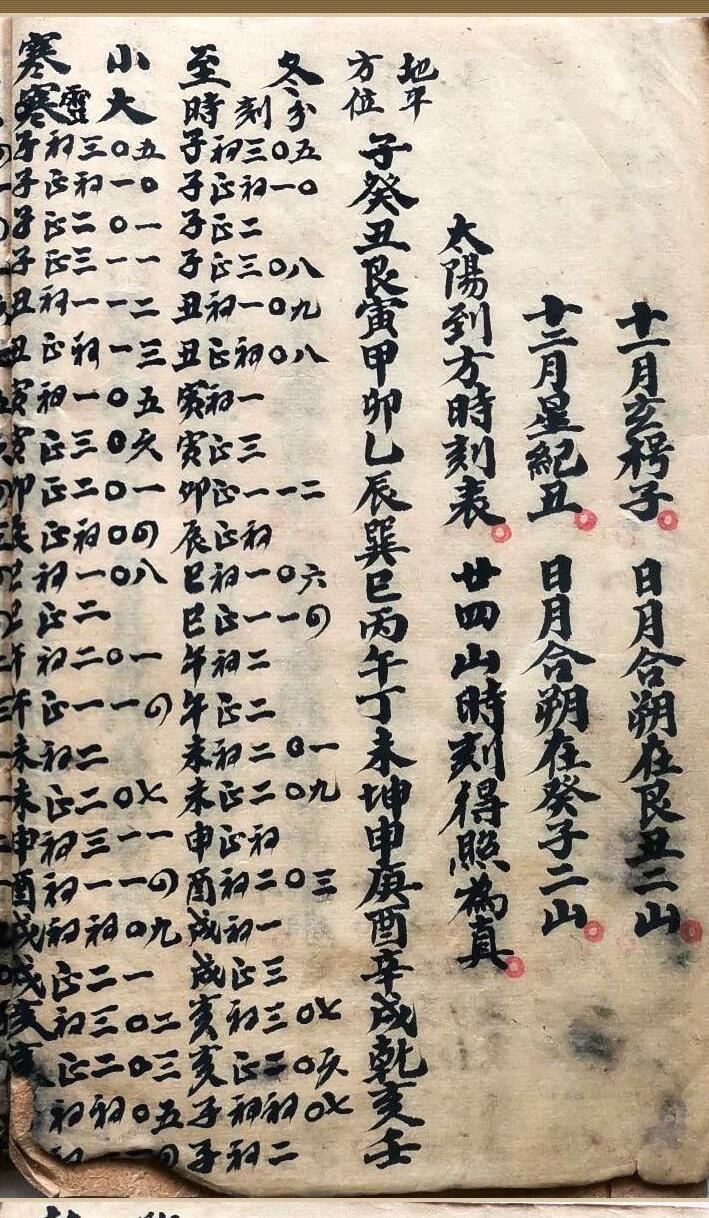 十一月玄枵子 日月合朔在艮丑二山
十二月星紀丑 日月合朔在癸子二山
太陽到方時刻表 廿四山時刻得照為真
地平
方位
子癸丑艮寅甲卯乙辰巽巳丙午丁未坤申庚酉辛戌乾亥壬
冬至
時刻分
子初三〇五
子正初一〇
子正二
子正三〇八
丑初一〇九
丑正初〇八
寅初一
寅正三
卯正一一二
辰正初
巳初一〇六
巳正一一四
午初二
午正二
未初二〇一
未正二〇九
申正初
酉初二〇三
戌初一
戌正三
亥初三〇七
亥正二〇六
子初初〇七
子初二
小寒
大寒
子初三〇五
子正初一〇
子正二〇一
子正三一一
丑初一一二
丑正初一三
寅初一〇五
寅正三〇六
卯正二〇一
辰正初〇四
巳初一〇八
巳正二
午初二〇一
午正一一四
未初二
未正二〇七
申初三一一
酉初一一四
戌初初〇九
戌正二一
亥初三〇二
亥正二〇三
初初〇五